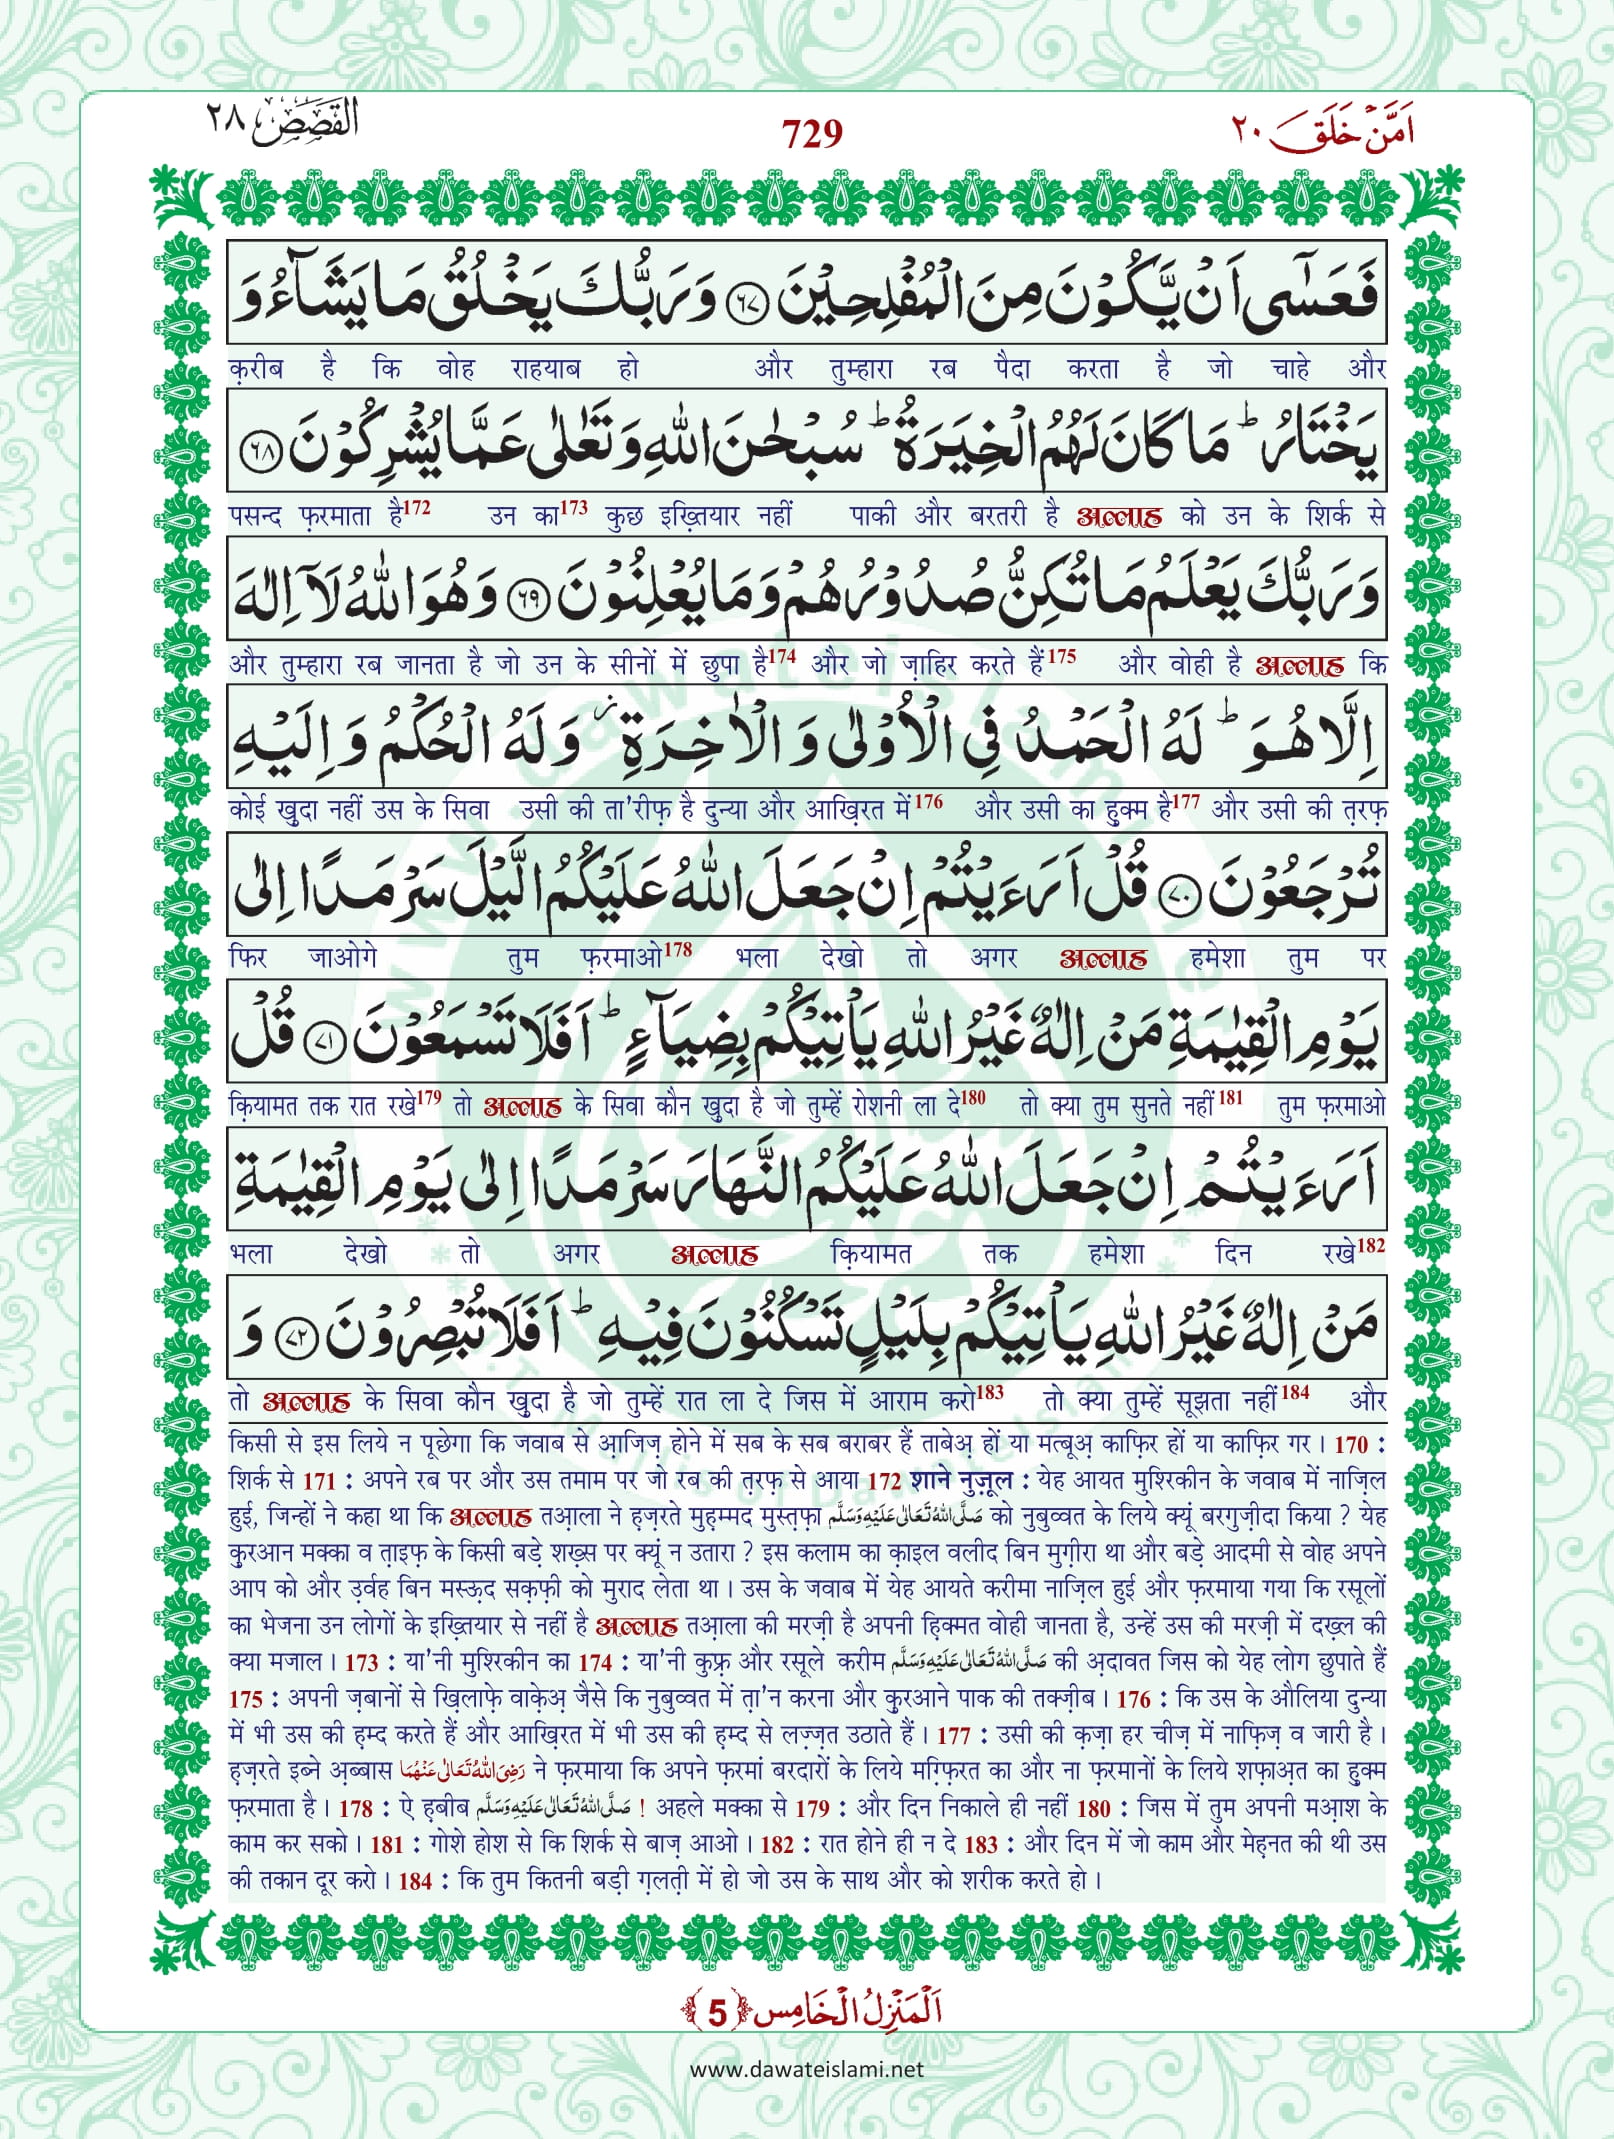 اَمَّنْ خَلَقَ ٢٠ 729 القَصَص ٢٨
فَعَسٰۤى اَنْ یَّكُوْنَ مِنَ الْمُفْلِحِیْنَ ﴿۶۷﴾ وَ رَبُّكَ یَخْلُقُ مَا یَشَآءُ وَ
क़रीब है कि वोह राहयाब हो और तुम्हारा रब पैदा करता है जो चाहे और
یَخْتَارُ ؕ مَا كَانَ لَهُمُ الْخِیَرَةُ ؕ سُبْحٰنَ اللّٰهِ وَ تَعٰلٰى عَمَّا یُشْرِكُوْنَ ﴿۶۸﴾
पसन्द फ़रमाता है172 उन का173 कुछ इख़्तियार नहीं पाकी और बरतरी है अल्लाह को उन के शिर्क से
وَ رَبُّكَ یَعْلَمُ مَا تُكِنُّ صُدُوْرُهُمْ وَ مَا یُعْلِنُوْنَ ﴿۶۹﴾ وَ هُوَ اللّٰهُ لَاۤ اِلٰهَ
और तुम्हारा रब जानता है जो उन के सीनों में छुपा है174 और जो ज़ाहिर करते हैं175 और वोही है अल्लाह कि
اِلَّا هُوَ ؕ لَهُ الْحَمْدُ فِی الْاُوْلٰى وَ الْاٰخِرَةِ ؗ وَ لَهُ الْحُكْمُ وَ اِلَیْهِ
कोई ख़ुदा नहीं उस के सिवा उसी की ता'रीफ़ है दुन्या और आख़िरत में176 और उसी का हुक्म है177 और उसी की त़रफ़
تُرْجَعُوْنَ ﴿۷۰﴾ قُلْ اَرَءَیْتُمْ اِنْ جَعَلَ اللّٰهُ عَلَیْكُمُ الَّیْلَ سَرْمَدًا اِلٰى
फिर जाओगे तुम फ़रमाओ178 भला देखो तो अगर अल्लाह हमेशा तुम पर
یَوْمِ الْقِیٰمَةِ مَنْ اِلٰهٌ غَیْرُ اللّٰهِ یَاْتِیْكُمْ بِضِیَآءٍ ؕ اَفَلَا تَسْمَعُوْنَ ﴿۷۱﴾ قُلْ
क़ियामत तक रात रखे179 तो अल्लाह के सिवा कौन ख़ुदा है जो तुम्हें रोशनी ला दे180 तो क्या तुम सुनते नहीं181 तुम फ़रमाओ
اَرَءَیْتُمْ اِنْ جَعَلَ اللّٰهُ عَلَیْكُمُ النَّهَارَ سَرْمَدًا اِلٰى یَوْمِ الْقِیٰمَةِ
भला देखो तो अगर अल्लाह क़ियामत तक हमेशा दिन रखे182
مَنْ اِلٰهٌ غَیْرُ اللّٰهِ یَاْتِیْكُمْ بِلَیْلٍ تَسْكُنُوْنَ فِیْهِ ؕ اَفَلَا تُبْصِرُوْنَ ﴿۷۲﴾ وَ
तो अल्लाह के सिवा कौन ख़ुदा है जो तुम्हें रात ला दे जिस में आराम करो183 तो क्या तुम्हें सूझता नहीं184 और
किसी से इस लिये न पूछेगा कि जवाब से आ़जिज़ होने में सब के सब बराबर हैं ताबेअ़ हों या मत्बूअ़ काफ़िर हों या काफ़िर गर । 170 :
शिर्क से 171 : अपने रब पर और उस तमाम पर जो रब की त़रफ़ से आया 172 शाने नुज़ूल : येह आयत मुश्रिकीन के जवाब में नाज़िल
हुई, जिन्हों ने कहा था कि अल्लाह तआ़ला ने ह़ज़रते मुह़म्मद मुस्त़फ़ा صَلَّی اللهُ تَعَالٰی عَلَیْهِ وَسَلَّم को नुबुव्वत के लिये क्यूं बरगुज़ीदा किया ? येह
क़ुरआन मक्का व त़ाइफ़ के किसी बड़े शख़्स पर क्यूं न उतारा ? इस कलाम का क़ाइल वलीद बिन मुग़ीरा था और बड़े आदमी से वोह अपने
आप को और उ़र्वह बिन मस्ऊ़द सक़फ़ी को मुराद लेता था । उस के जवाब में येह आयते करीमा नाज़िल हुई और फ़रमाया गया कि रसूलों
का भेजना उन लोगों के इख़्तियार से नहीं है अल्लाह तआ़ला की मरज़ी है अपनी ह़िक्मत वोही जानता है, उन्हें उस की मरज़ी में दख़्ल की
क्या मजाल । 173 : या'नी मुश्रिकीन का 174 : या'नी कुफ़्र और रसूले करीम صَلَّی اللهُ تَعَالٰی عَلَیْهِ وَسَلَّم की अ़दावत जिस को येह लोग छुपाते हैं
175 : अपनी ज़बानों से ख़िलाफ़े वाक़ेअ़ जैसे कि नुबुव्वत में त़ा'न करना और क़ुरआने पाक की तक्ज़ीब । 176 : कि उस के औलिया दुन्या
में भी उस की ह़म्द करते हैं और आख़िरत में भी उस की ह़म्द से लज़्ज़त उठाते हैं । 177 : उसी की क़ज़ा हर चीज़ में नाफ़िज़ व जारी है ।
ह़ज़रते इब्ने अ़ब्बास رَضِیَ اللهُ تَعَالٰی عَنْهُمَا ने फ़रमाया कि अपने फ़रमां बरदारों के लिये मग़्फ़िरत का और ना फ़रमानों के लिये शफ़ाअ़त का हुक्म
फ़रमाता है । 178 : ऐ ह़बीब صَلَّی اللهُ تَعَالٰی عَلَیْهِ وَسَلَّم ! अहले मक्का से 179 : और दिन निकाले ही नहीं 180 : जिस में तुम अपनी मआ़श के
काम कर सको । 181 : गोशे होश से कि शिर्क से बाज़ आओ । 182 : रात होने ही न दे 183 : और दिन में जो काम और मेह़नत की थी उस
की तकान दूर करो । 184 : कि तुम कितनी बड़ी ग़लत़ी में हो जो उस के साथ और को शरीक करते हो ।
اَلْمَنْزِلُ الْخَامِس ﴿5﴾
www.dawateislami.net